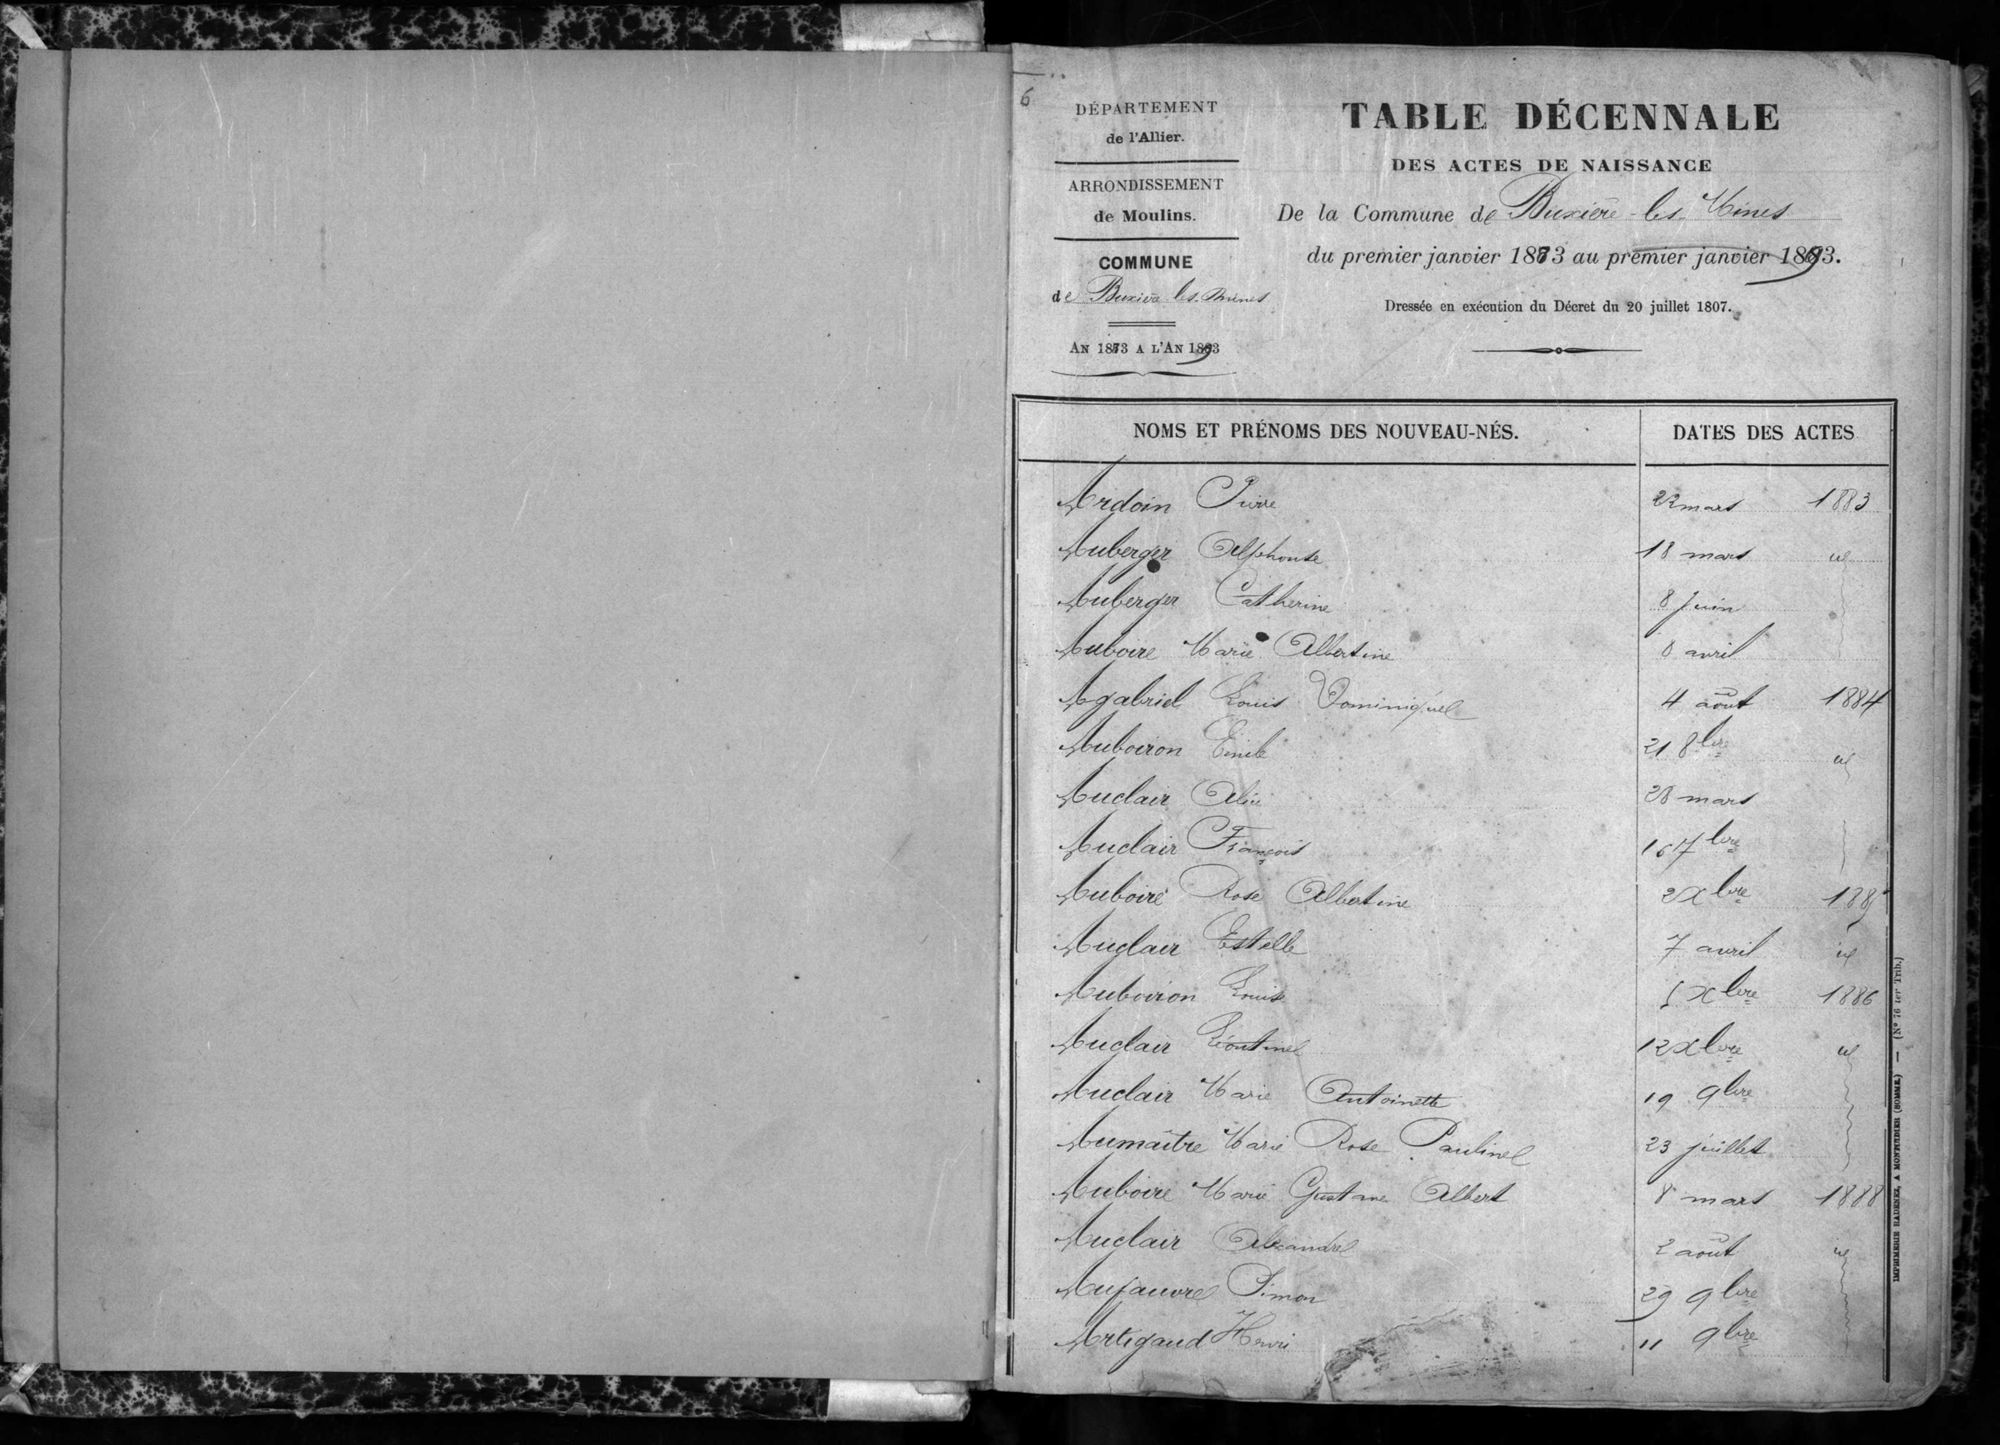 6
DÉPARTEMENT
de l'Allier.
ARRONDISSEMENT
de Moulins.
COMMUNE
de Buxière les Mines
AN 1883 A L'AN 1893
TABLE DÉCENNALE
DES ACTES DE NAISSANCE
De la Commune de Buxière-les Mines
du premier janvier 1883 au premier janvier 1893.
Dressée en exécution du Décret du 20 juillet 1807.
NOMS ET PRÉNOMS DES NOUVEAU-NÉS. DATES DES ACTES
Ardoin Pierre 22 mars 1883
Auberger Alphonse 18 mars id
Auberger Catherine 8 Juin
Auboire Marie Albertine 8 avril
Agabriel Louis Dominique 4 août 1884
Auboiron Emile 21 8bre id
Auclair Alice 28 mars
Auclair François 16 7bre
Auboire Rose Albertine 2 Xbre 1885
Auclair Estelle 7 avril id
Auboiron Louis 5 Xbre 1886
Auclair Léontine 12 Xbre id
Auclair Marie Antoinette 19 9bre
Aumaître Marie Rose Pauline 23 juillet
Auboire Marie Gustave Albert 8 mars 1888
Auclair Alexandre 2 août id
Aufauvre Simon 29 9bre
Artigaud Henri 11 9bre
IMPRIMERIE RADENEZ, A MONTDIDIER (SOMME.) — (N° 76 ter Trib.)